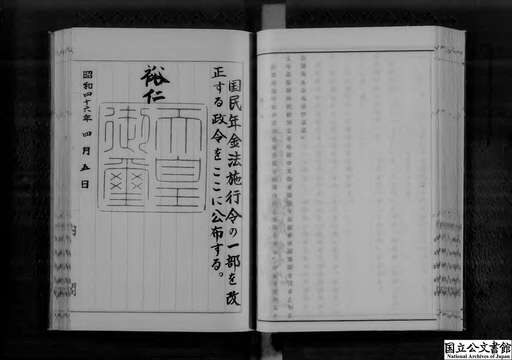 国民年金法施行令の一部を改
正する政令をここに公布する。
裕仁
天皇
御璽
昭和四十六年四月五日
内閣
国立公文書館
National Archives of Japan